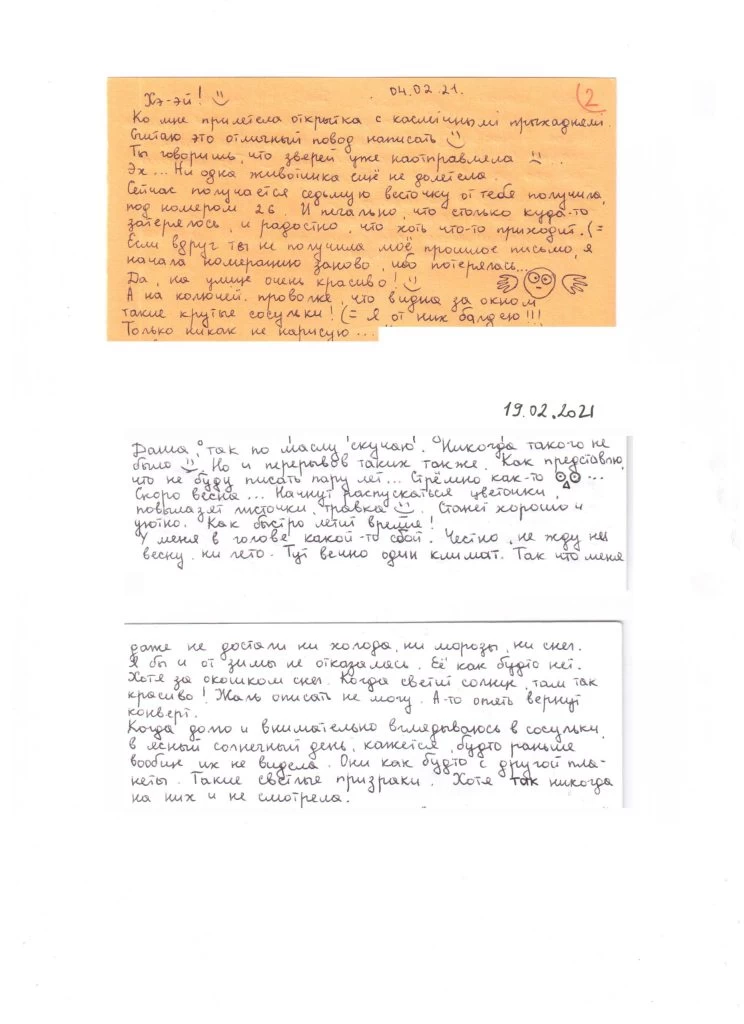 04.02.21.
2
Хэ-эй!
Ко мне прилетела открытка с касмічнымі прыхаднем.
Считаю это отличный повод написать
Ты говоришь, что зверей уже наотправляла ...
Эх... Ни одна животинка ещё не долетела.
Сейчас получается седьмую весточку от тебя получила,
под номером 26. И печально, что столько куда-то
затерялось, и радостно, что хоть что-то приходит. (=
Если вдруг ты не получила моё прошлое письмо, я
начала нумерацию заново, ибо потерялась...
Да, на улице очень красиво!
А на колючей проволке, что видна за окном
такие крутые сосульки! (= Я от них балдею!!!
Только никак не нарисую...
19.02.2021
Даша, так по маслу "скучаю". Никогда такого не
было. Но и перерывов таких также. Как представлю,
что не буду писать пару лет... Стрёмно как-то ...
Скоро весна... Начнут распускаться цветочки,
повылазят листочки, травка. Станет хорошо и
уютно. Как быстро летит время!
У меня в голове какой-то сбой. Честно, не жду ни
весну, ни лето. Тут вечно один климат. Так что меня
даже не достали ни холода, ни морозы, ни снег.
Я бы и от зимы не отказалась. Её как будто нет.
Хотя за окошком снег. Когда светит солнце, там так
красиво! Жаль описать не могу. А-то опять вернут
конверт.
Когда долго и внимательно вглядываюсь в сосульки,
в ясный солнечный день, кажется, будто раньше
вообще их не видела. Они как будто с другой пла-
неты. Такие светлые призраки. Хотя так никогда
на них и не смотрела.